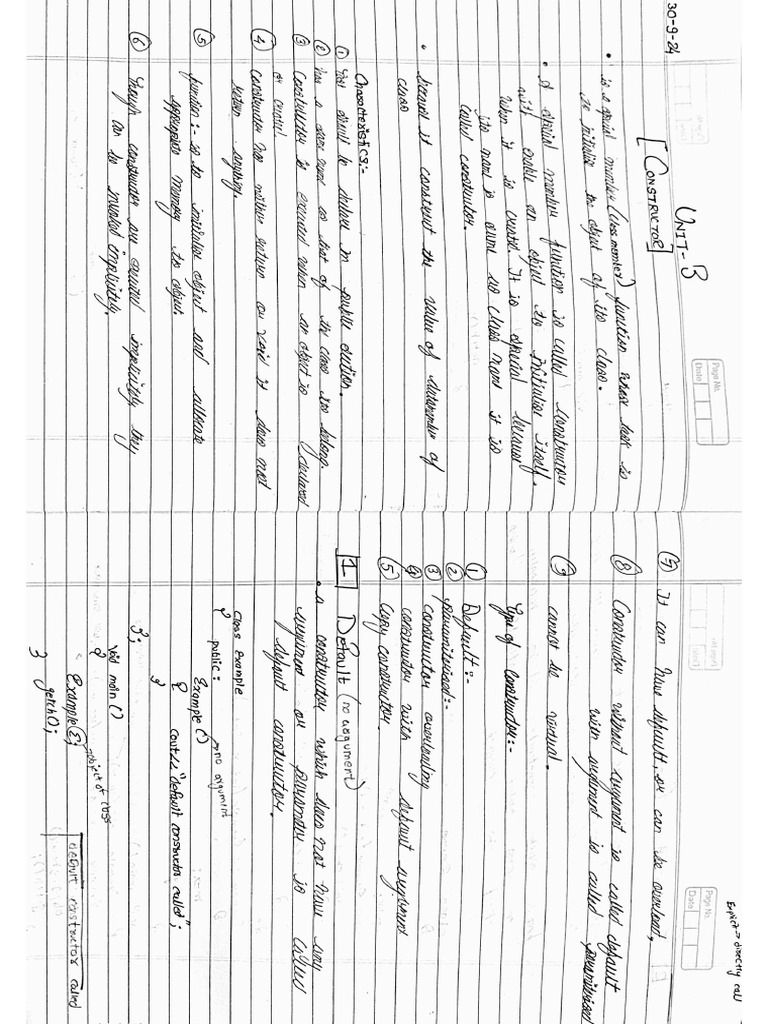 30-9-24
Page No.
Date
UNIT-B
[CONSTRUCTOR]
• is a special member (class member) function whose task is
to initialize the object of its class.
• A special member function is called constructor
with enable an object to initialise itself.
when it is created. It is special because
its name is same as class name it is
called constructor.
• because it construct the value of datamember of
class
Characteristics:-
① They should be declare in public section.
② has a same name as that of the class it to belong.
③ constructor is executed when an object is declared
or created
④ constructor has neither return or void it does not
return anything.
⑤ function:- is to initialise object and allocate
appropriate memory to object.
⑥ Though constructor are executed implicitely they
can be invoked implicitely.
Page No.
Date
Explicit → directly call
⑦ It can have default, or can be overload,
⑧ Constructor without argument is called default
with argument is called paramitarised
⑨ cannot be virtual.
Type of constructor:-
① Default:-
② paramitarised:-
③ constructor overloading
④ constructor with default argument
⑤ copy constructor.
1 Default (no argument)
• a constructor which does not have any
argument or parameter is called
default constructor.
Class Example
{
public:
Example () → no argument
{ cout<<"default constructor called";
}
};
void main ()
{
Example E; → object of class
getch();
}
default constructor called